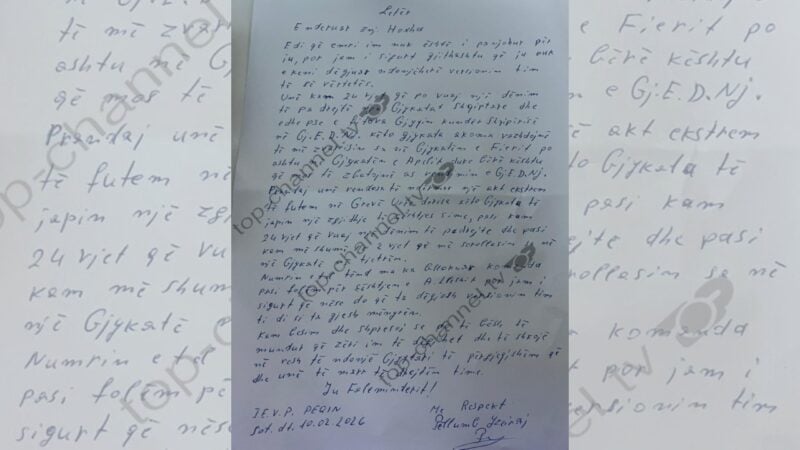 Letër
Enderuar znj Hoxha
Edi që emri im nuk është i panjohur për
ju, por jam i sigurt gjithashtu që ju nuk
e keni dëgjuar ndonjëherë versionin tim
të së vërtetës.
Unë kam 24 vjet që po vuaj një dënim
të pa drejtë nga Gjykatat Shqiptare dhe
edhe pse e fitova Gjyqin kundër Shqipërisë
në Gj.E.D.Nj. këto gjykata akoma vazhdojnë
të më zvarrisin sa në Gjykatën e Fierit po
ashtu në Gjykatën e Apelit duke bërë kështu
që mos të zbatojnë as vendimin e Gj.E.D.Nj.
Prandaj unë vendosa të ndërmar një akt ekstrem
të futem në Grevë Urie derisa këto Gjykata të
japin një zgjidhje të çështjes sime, pasi kam
24 vjet që vuaj një dënim të padrejtë dhe pasi
kam më shumë se 2 vjet që më sorollasin sa në
një Gjykatë e tjetrën.
Numrin e tel tënd ma ka komanda
pasi folëm për por jam i
sigurt që nëse do që ta dëgjosh versionin tim
ti di si ta gjesh mënyrën.
Kam besim dhe shpresoj se do të bësh të
mundur që zëri im të dëgjohet dhe të shkojë
në vesh të ndonjë Gjyqtari të përgjegjshëm që
dhe unë të marr të drejtën time.
Ju Faleminderit!
I.E.V.P. PEQIN
Sot. dt. 10.02.2026
Me Respekt
Pëllumb
top-channel.tv
top-channel.tv
top-channel.tv